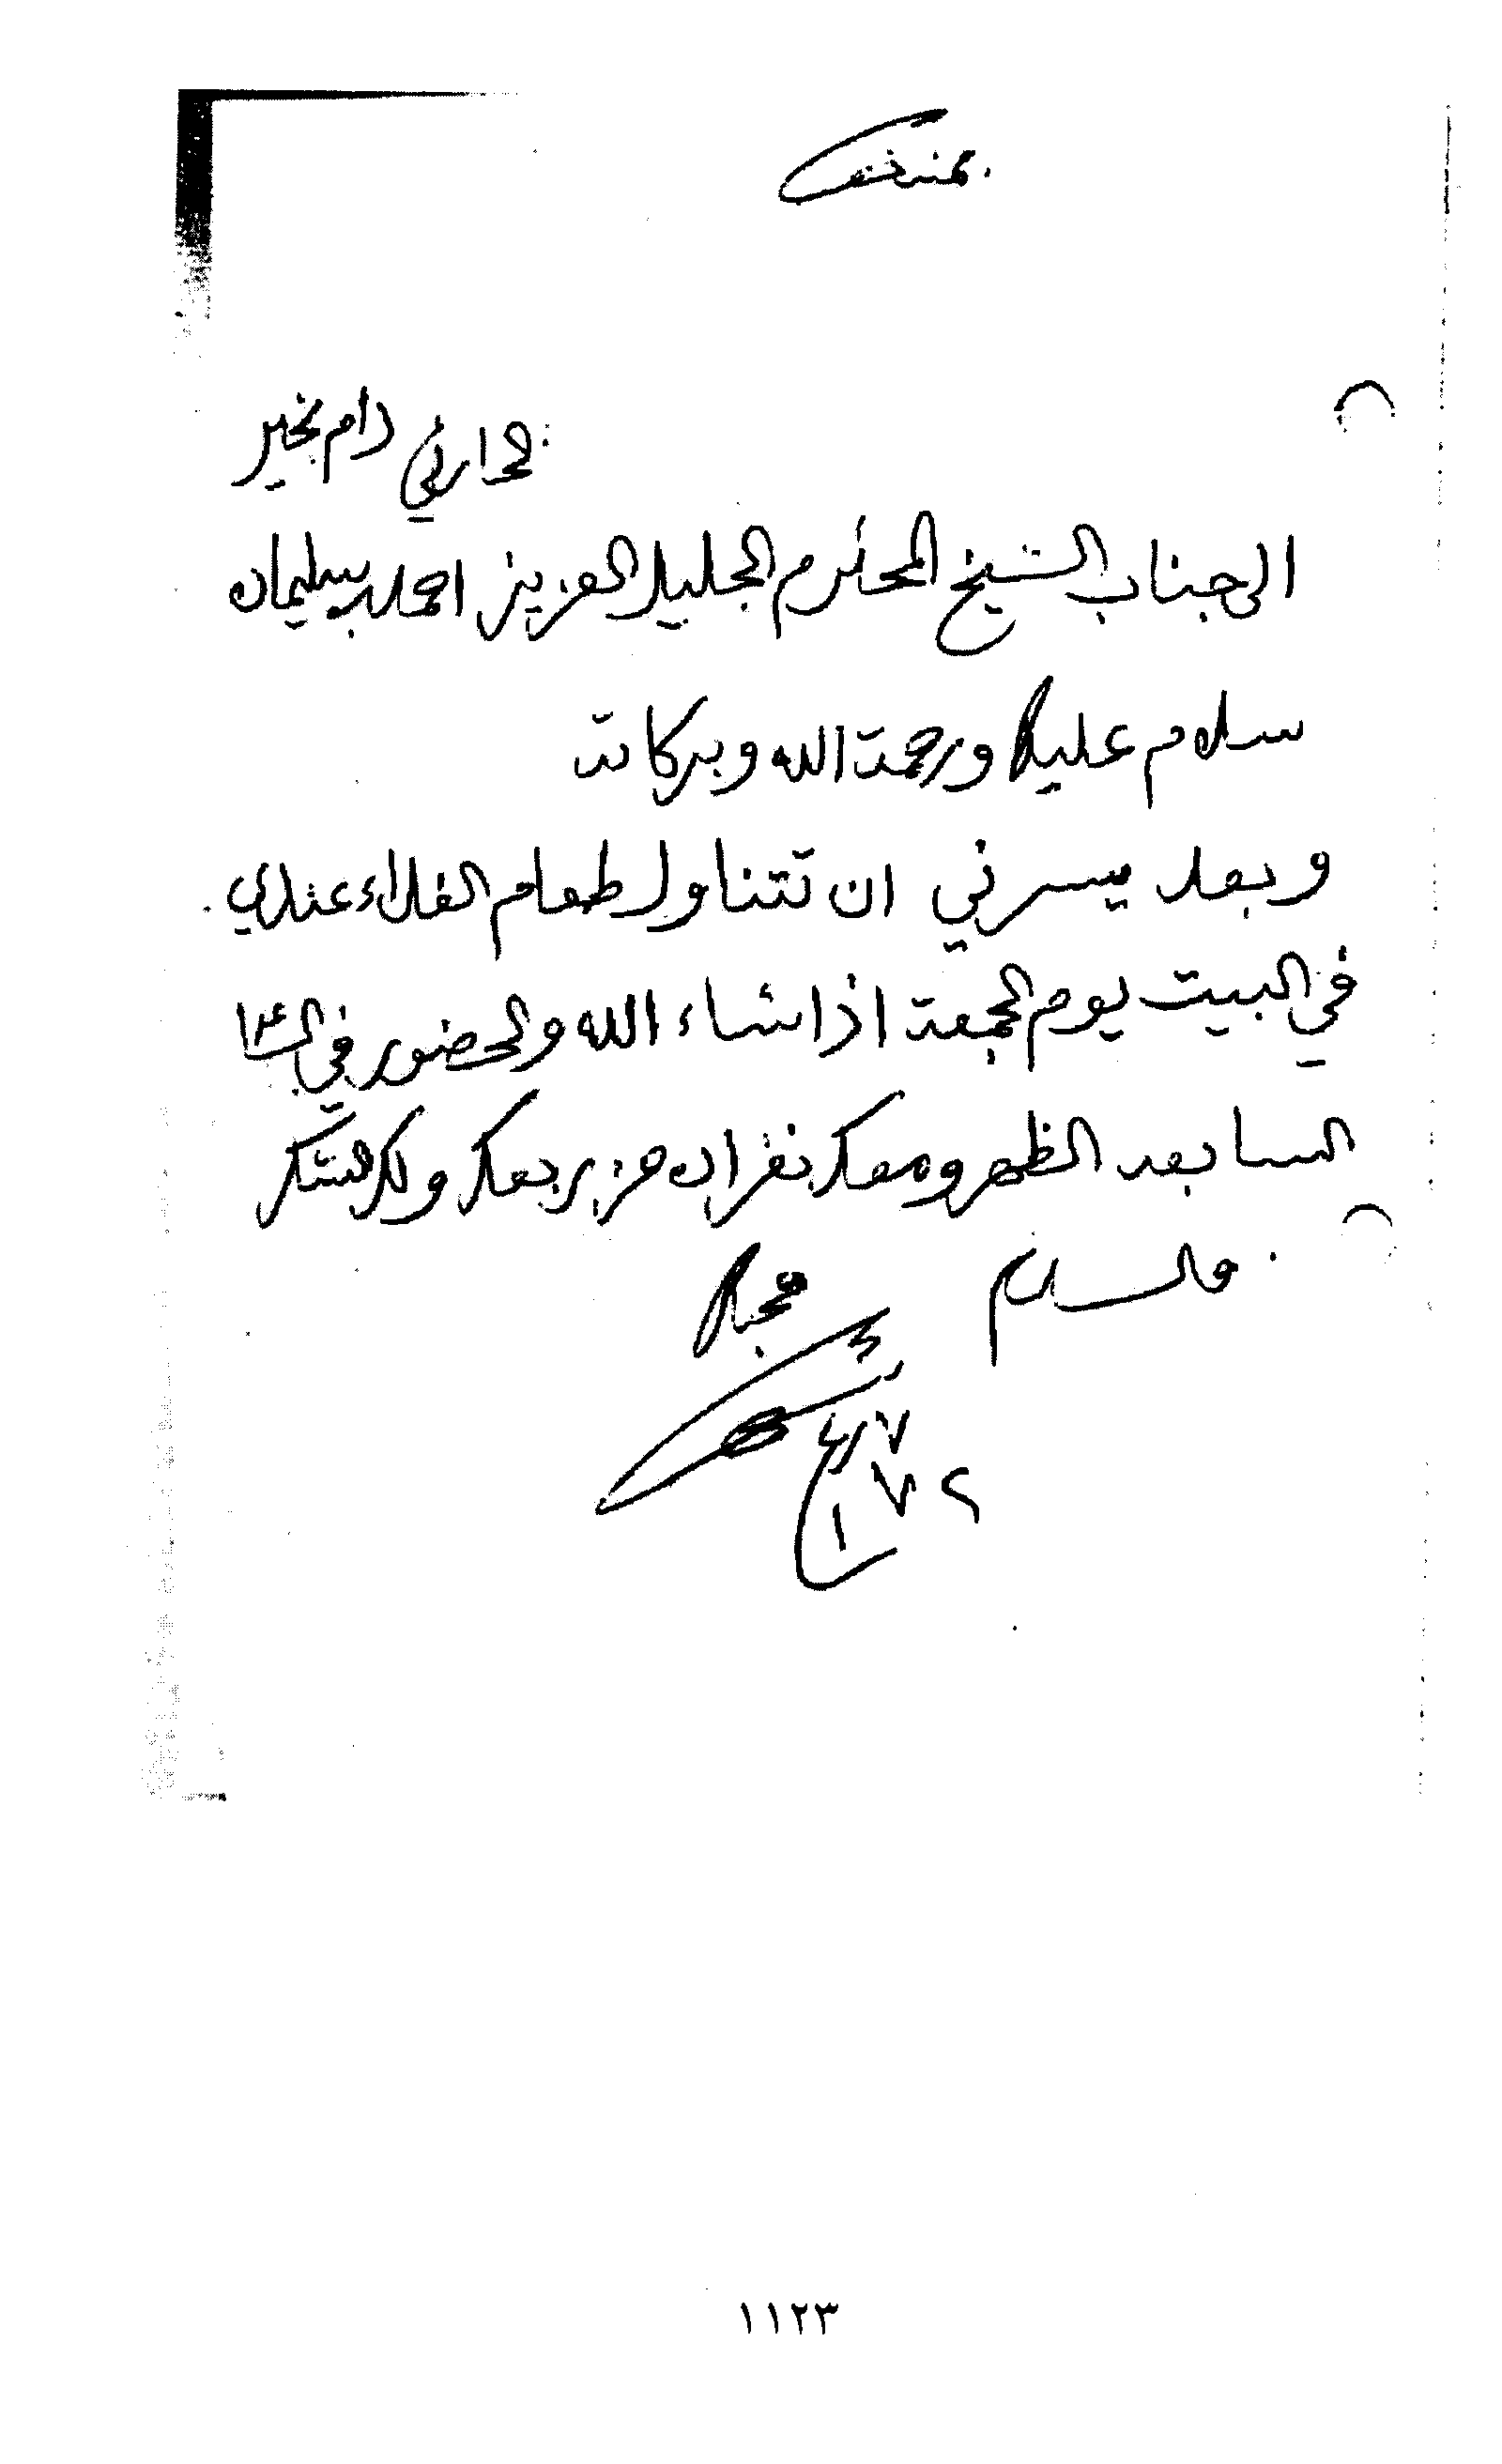 بمنه تعالى
دام بخير
الى جناب الشيخ المحترم الجليل العزيز احمد بن سليمان
سلام عليك ورحمة الله وبركاته
وبعد يسرني ان تتناول طعام الغداء عندي
في البيت يوم الجمعة اذا شاء الله والحضور في الـ
السا بعد الظهر ومعك نفران من ربعك ولك الشكر
والسلام
محبك
١١٢٣